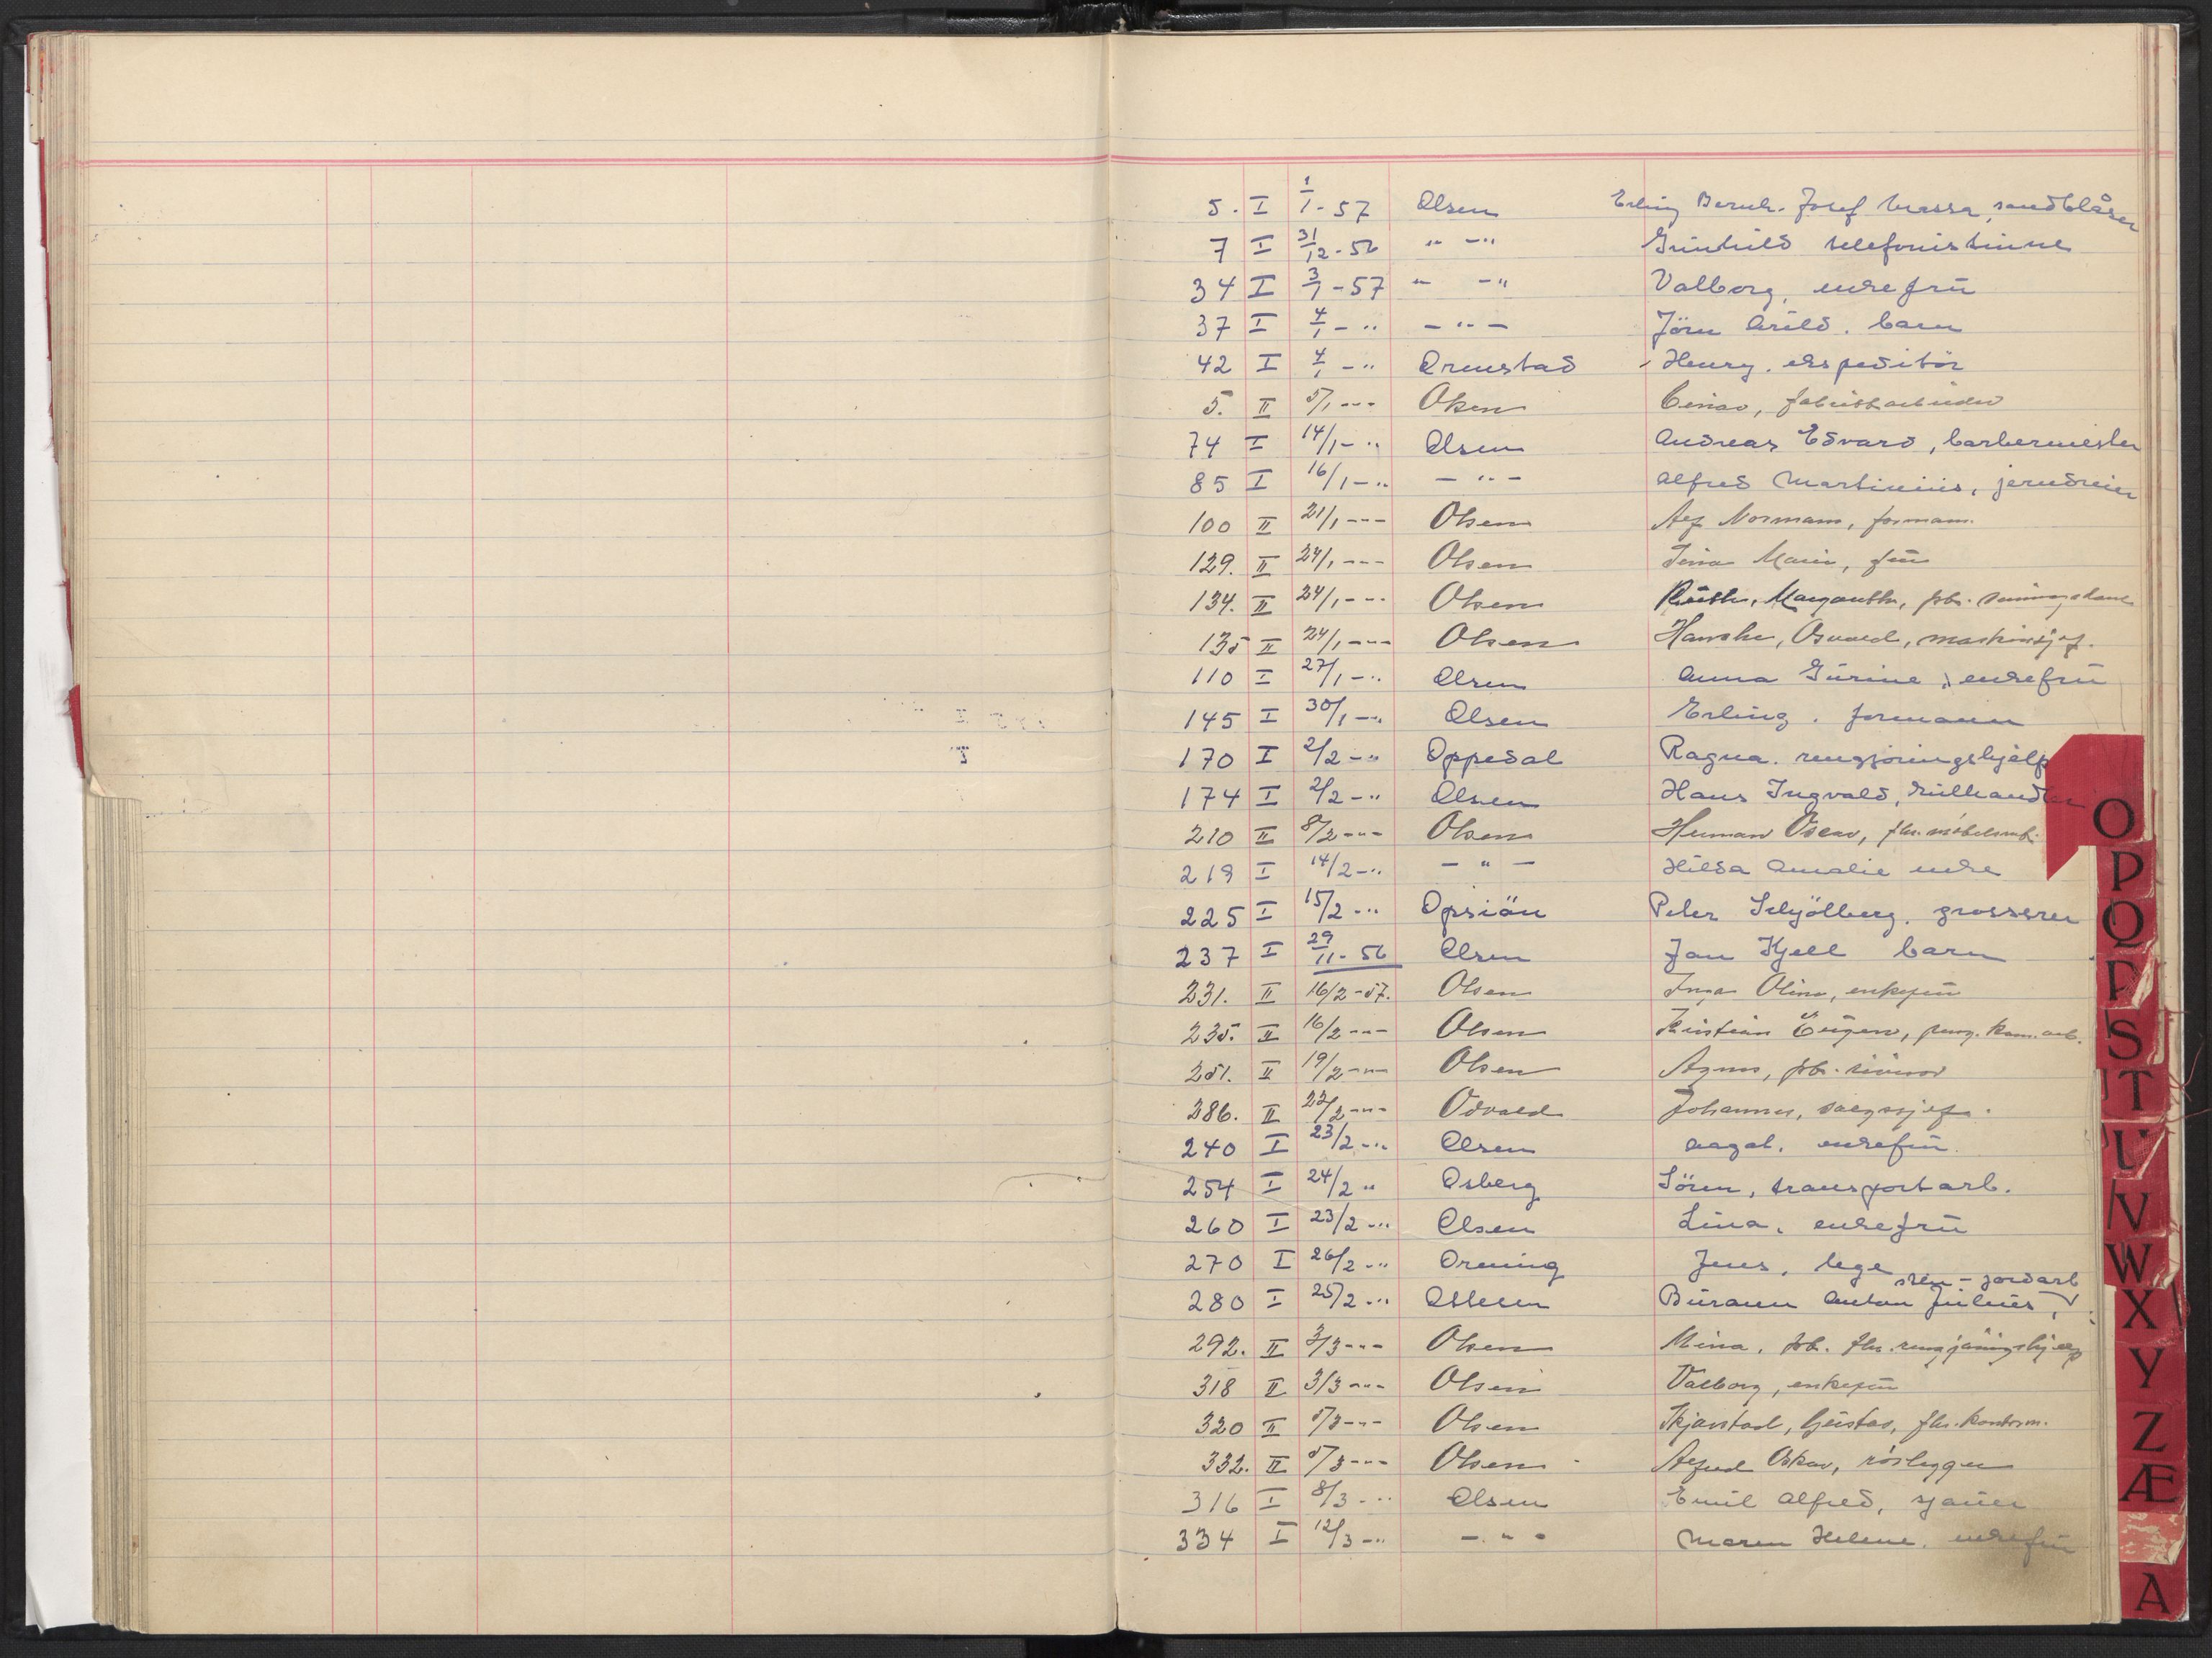 5. I 1/1-57 Olsen Erling Bernh. Josef Massa, sandblåser
7 I 31/12-56 " - " Gunhild telefonistinne
34 I 3/1-57 " - " Valborg, enkefrü
37 I 4/1 - " - " - Jörn Arild. barn
42 I 4/1 - " Ormstad Henry. ekspeditör
5. II 5/1 - " - Olsen Einar, fabrikkarbeider
74 I 14/1 - " Olsen Andreas Edvard, barbermester
85 I 16/1 - " - " - Alfred Martinius, jerndreier
100 II 21/1 - " - Olsen Alf Normann, formann.
129. II 24/1 - " - Olsen Marie, frü
134. II 24/1 - " - Olsen Rüth, Margrethe,
135 II 24/1 - " - Olsen Osvald, maskinsjef.
110 I 27/1 - " Olsen Anna Gürine, enkefrü
145 I 30/1 - " Olsen Erling. formann
170 I 2/2 - " Oppedal Ragna. rengjöringshjelp
174 I 2/2 - " Olsen Hans Ingvald, külhandler
210 II 8/2 - " - Olsen Herman Oscar, fhv. möbelsnek.
219 I 14/2 - " - " - Hilda Amalie enke
225 I 15/2 - " Opsiön Peter Schjölberg. grosserer
237 I 29/11-56 Olsen Jan Kjell barn
231. II 16/2-57. Olsen Inga Oline, enkefrü
235. II 16/2 - " - Olsen Kristian Eügen, pens. kom. arb.
251. II 19/2 - " - Olsen Agnes,
286. II 22/2 - " - Odvald Johannes, salgssjef.
240 I 23/2 - " Olsen Aagot, enkefrü.
254 I 24/2 " Osberg Sören, transportarb.
260 I 23/2 - " Olsen Lina, enkefrü
270 I 26/2 - " Orning Jens, lege
sten - jordarb
280 I 25/2 - " Ottesen Anton Julius, V
292. II 3/3 - " - Olsen Mina, fhv. rengjöringshjelp
318 II 3/3 - " - Olsen Valborg, enkefrü
320 II 5/3 - " - Olsen Skjarstad, Güstav, fhv. kontorm.
332. II 5/3 - " - Olsen Alfred Oskar, rörlegger
316 I 8/3 - " Olsen Emil Alfred, sjauer
334 I 12/3 - " - " - Maren Helene. enkefrü
O
P
Q
R
S
T
U
V
W
X
Y
Z
Æ
A